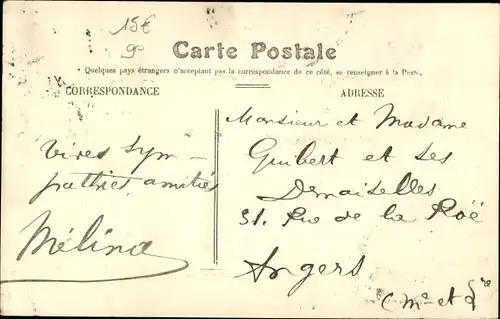 15€
9e
Carte Postale
Quelques pays étrangers n'acceptant pas la correspondance de ce côté, se renseigner à la Poste.
CORRESPONDANCE
ADRESSE
Vives sym-
pathies amitiés
Mélina
Monsieur et Madame
Guibert et Ses
Demoiselles
31. Rue de la Roë
Angers
(Me et Lre